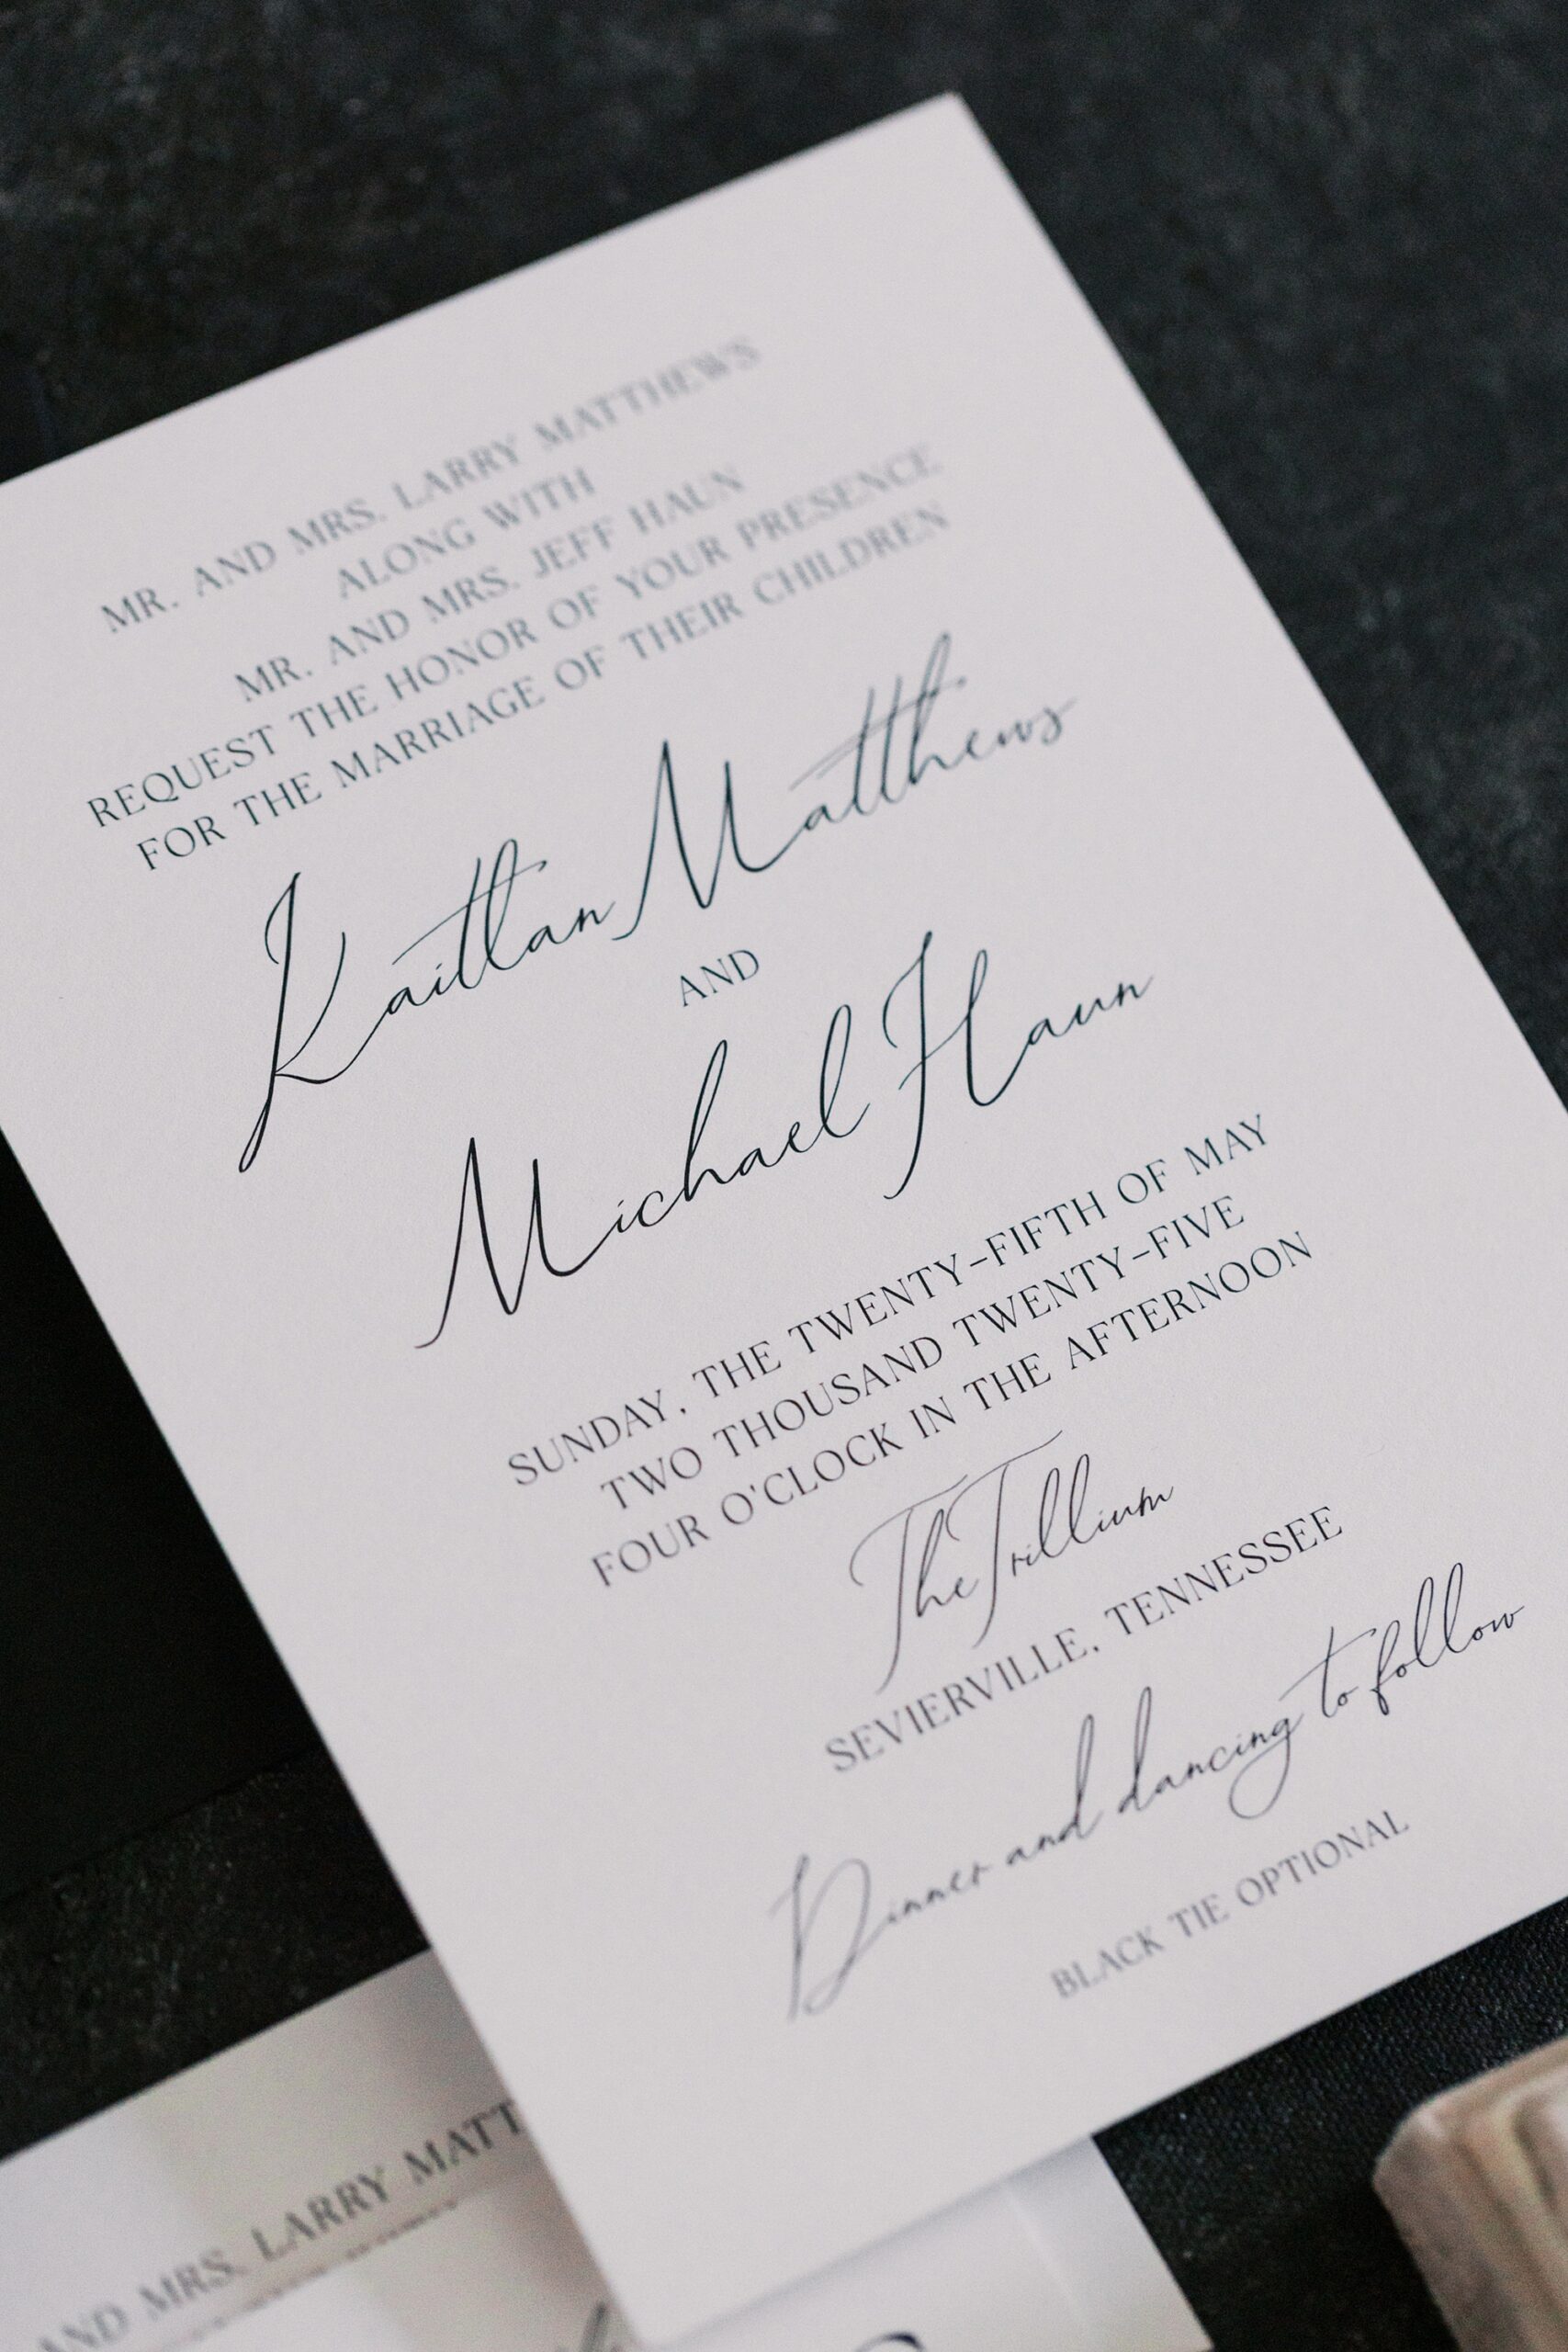 MR. AND MRS. LARRY MATTHEWS
ALONG WITH
MR. AND MRS. JEFF HAUN
REQUEST THE HONOR OF YOUR PRESENCE
FOR THE MARRIAGE OF THEIR CHILDREN
Kaitlan Matthews
AND
Michael Haun
SUNDAY, THE TWENTY-FIFTH OF MAY
TWO THOUSAND TWENTY-FIVE
FOUR O'CLOCK IN THE AFTERNOON
The Trillium
SEVIERVILLE, TENNESSEE
Dinner and dancing to follow
BLACK TIE OPTIONAL
AND MRS. LARRY MATT